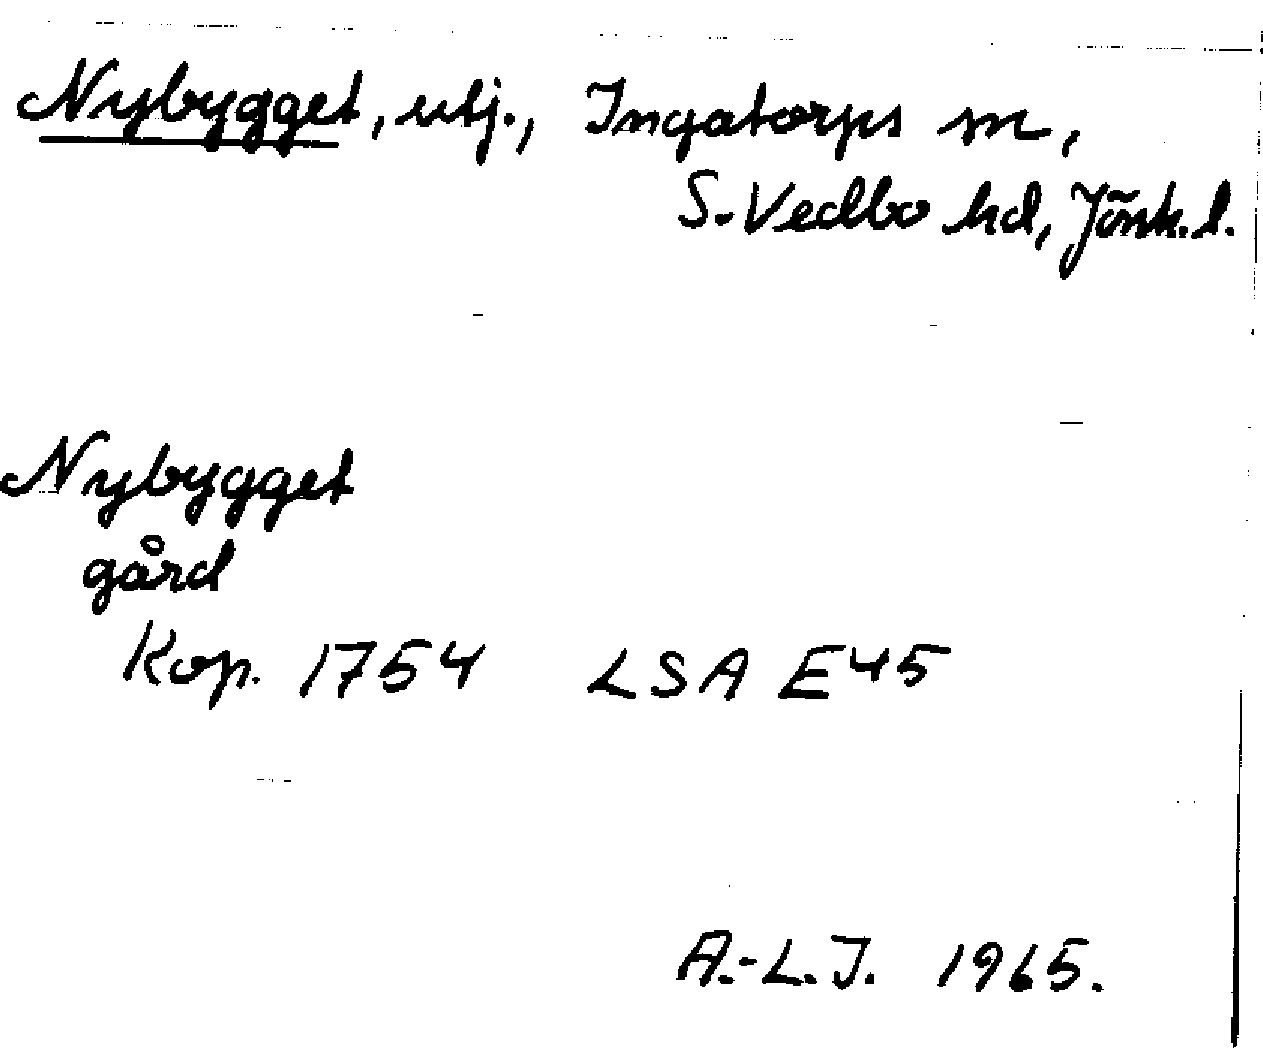 Nybygget, utj., Ingatorps sn,
S. Vedbo hd, Jönk. l.
Nybygget
gård
Kop. 1754 LSA E45
A.-L.J. 1965.